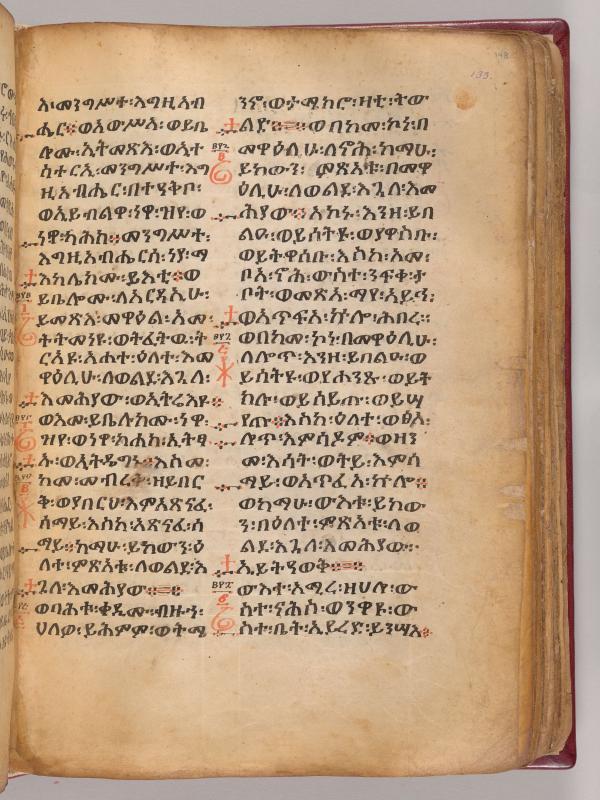 አ፡መንግሥተ፡እግዚአብ
ሔር፡፡ወአውሥአ፡ወይቤ
ሎሙ፡ኢትመጽእ፡ወኢት
ስተርኢ፡መንግሥተ፡እግ
ዚአብሔር፡በተዓቅቦ፡
ወኢይብልዋ፡ነዋ፡ዝየ፡ወ
ነዋ፡ካሕከ፡፡መንግሥተ፡
እግዚአብሔርሰ፡ነየ፡ማ
እከሌክሙ፡ይእቲ፡፡ወ
ይቤሎሙ፡ለአርዳኢሁ፡
ይመጽእ፡መዋዕል፡አመ፡
ትትመነዩ፡ወትፈትዉ፡ት
ርአዩ፡አሐተ፡ዕለተ፡እመ
ዋዕሊሁ፡ለወልደ፡እጓለ፡
እመሕያው፡ወኢትሬእዩ፡፡
ወእመ፡ይቤሉክሙ፡ነዋ፡
ዝየ፡ወነዋ፡ካሕከ፡ኢትፃ
ኡ፡ወኢትዴግኑ፡፡እስመ፡
ከመ፡መብረቅ፡ዘይበር
ቅ፡ወያበርህ፡እምአጽናፈ፡
ሰማይ፡እስከ፡አጽናፈ፡ሰ
ማይ፡፡ከማሁ፡ይከውን፡ዕ
ለተ፡ምጽአቱ፡ለወልደ፡እ
ጓለ፡እመሕያው፡፡
ወባሕቱ፡ቀዲሙ፡ብዙኀ፡
ሀለወ፡ይሕምም፡ወትሜ
ንኖ፡ወታሜክሮ፡ዛቲ፡ትው
ልድ፡፡ወበከመ፡ኮነ፡በ
መዋዕሊሁ፡ለኖሕ፡ከማሁ፡
ይከውን፡ምጽአቱ፡በመዋ
ዕሊሁ፡ለወልደ፡እጓለ፡እመ
ሕያው፡፡እኮኑ፡እንዘ፡ይበ
ልዑ፡ወይሰትዩ፡ወያዋስቡ፡
ወይትዋሰቡ፡እስከ፡አመ፡
ቦአ፡ኖሕ፡ውስተ፡ንፍቀ፡ታ
ቦት፡ወመጽአ፡ማየ፡አይኅ፡
ወአጥፍአ፡ኵሎ፡ኅቡረ፡፡
ወበከመ፡ኮነ፡በመዋዕሊሁ፡
ለሎጥ፡እንዘ፡ይበልዑ፡ወ
ይሰትዩ፡ወየሐንጹ፡ወይት
ከሉ፡ወይሰይጡ፡ወይሣ
የጡ፡፡እስከ፡ዕለተ፡ወፅአ፡
ሎጥ፡እምሰዶም፡፡ወዘን
መ፡እሳተ፡ወተይ፡እምሰ
ማይ፡ወአጥፈአ፡ኵሎ፡፡
ወከማሁ፡ውእቱ፡ይከው
ን፡በዕለተ፡ምጽአቱ፡ለወ
ልደ፡እጓለ፡እመሕያው፡፡
ኢይትዓወቅ፡፡
ውእተ፡አሚረ፡ዘሀሎ፡ው
ስተ፡ናሕስ፡ወንዋዩ፡ው
ስተ፡ቤት፡ኢይረድ፡ይንሣእ፡፡
133.